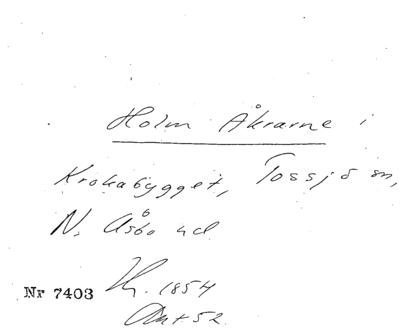 Holm Åkrarne i
Krokabygget, Tossjö sn,
N. Åsbo hd
Nr 7403
1854
Akt 52